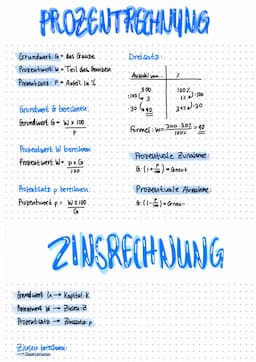 PROZENTRECHNUNG
Grundwert G = das Ganze
Prozentwert W = Teil des Ganzen
Prozentsatz p = Anteil in %
Grundwert G berechnen:
Grundwert G = W x 100
p
Prozentwert W berechnen
Prozentwert W = p x G
100
Prozentsatz p berechnen:
Prozentwert p = W x 100
G
Dreisatz:
Anzahl von...
%
300
100%
:100
3
1%
:100
·30
90
30%
·30
Formel: W= 300·30% = 90
100%
Prozentuale Zunahme:
Prozentuale Abnahme:
ZINSRECHNUNG
Grundwert G → Kapital K
Prozentwert W → Zinsen Z
Prozentsatz → Zinssatz p
Zinsen berechnen: